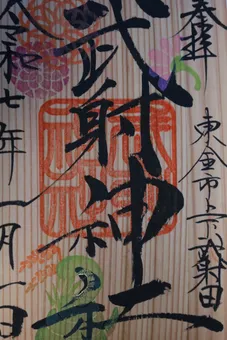 奉拝
東金市上武射田
武射神社
令和七年一月一日